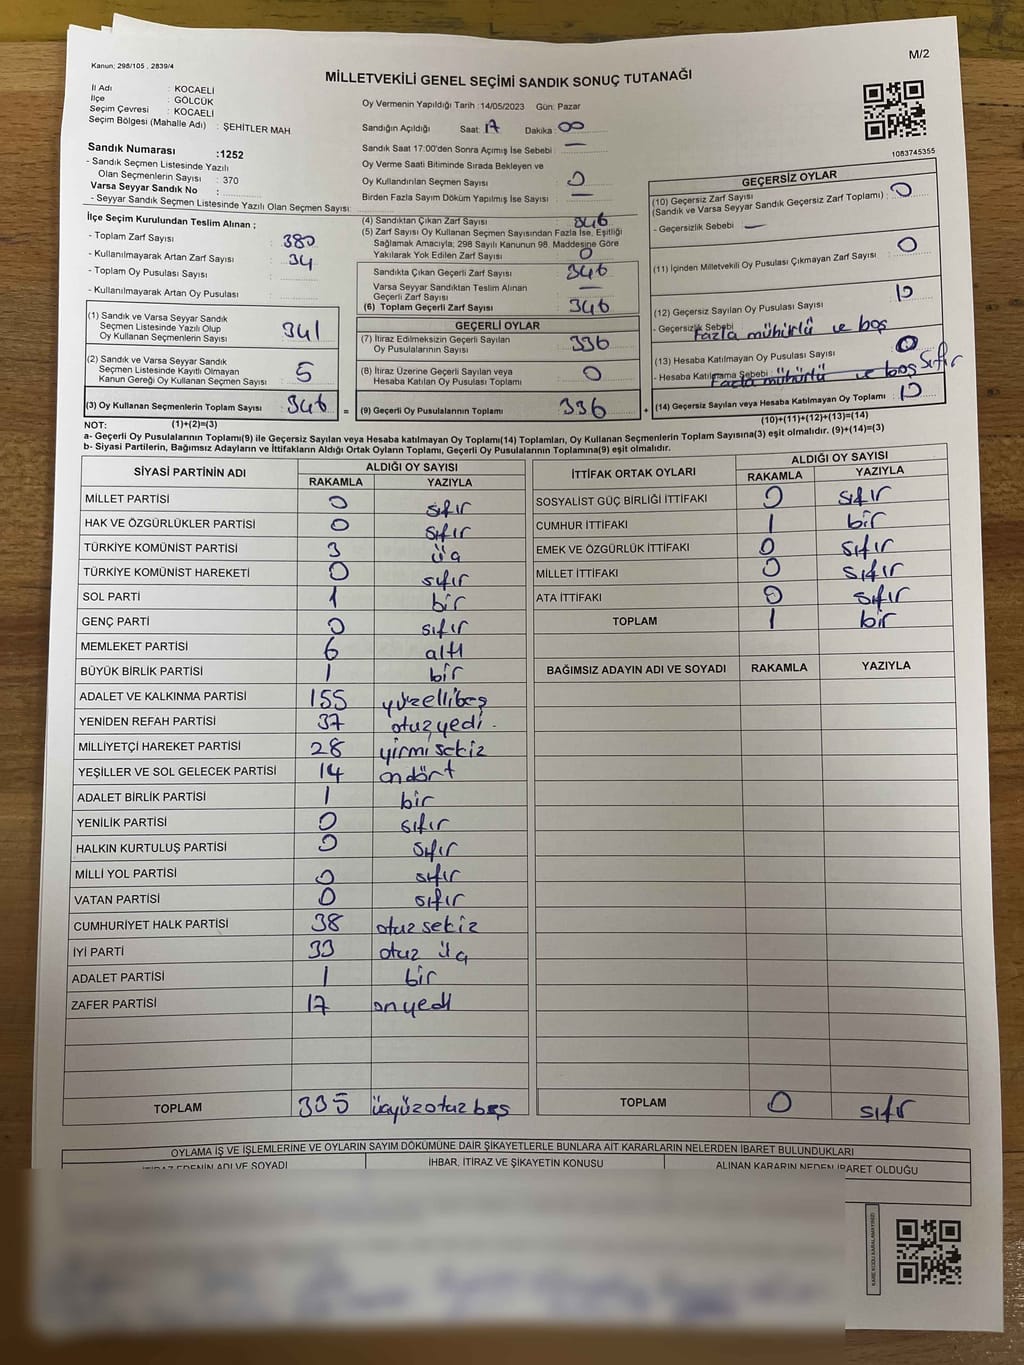 M/2
Kanun; 298/105 , 2839/4
MİLLETVEKİLİ GENEL SEÇİMİ SANDIK SONUÇ TUTANAĞI
İl Adı : KOCAELİ
İlçe : GÖLCÜK
Seçim Çevresi : KOCAELİ
Seçim Bölgesi (Mahalle Adı) : ŞEHİTLER MAH
Sandık Numarası :1252
- Sandık Seçmen Listesinde Yazılı
Olan Seçmenlerin Sayısı : 370
Varsa Seyyar Sandık No :
- Seyyar Sandık Seçmen Listesinde Yazılı Olan Seçmen Sayısı:
İlçe Seçim Kurulundan Teslim Alınan ;
- Toplam Zarf Sayısı : 380
- Kullanılmayarak Artan Zarf Sayısı : 34
- Toplam Oy Pusulası Sayısı :
- Kullanılmayarak Artan Oy Pusulası :
(1) Sandık ve Varsa Seyyar Sandık
Seçmen Listesinde Yazılı Olup
Oy Kullanan Seçmenlerin Sayısı : 341
(2) Sandık ve Varsa Seyyar Sandık
Seçmen Listesinde Kayıtlı Olmayan
Kanun Gereği Oy Kullanan Seçmen Sayısı : 5
(3) Oy Kullanan Seçmenlerin Toplam Sayısı : 346 =
Oy Vermenin Yapıldığı Tarih :14/05/2023 Gün: Pazar
Sandığın Açıldığı Saat: 17 Dakika : 00
Sandık Saat 17:00'den Sonra Açımış İse Sebebi : —
Oy Verme Saati Bitiminde Sırada Bekleyen ve
Oy Kullandırılan Seçmen Sayısı : 0
Birden Fazla Sayım Döküm Yapılmış İse Sayısı : —
(4) Sandıktan Çıkan Zarf Sayısı : 346
(5) Zarf Sayısı Oy Kullanan Seçmen Sayısından Fazla İse, Eşitliği
Sağlamak Amacıyla; 298 Sayılı Kanunun 98. Maddesine Göre
Yakılarak Yok Edilen Zarf Sayısı : 0
Sandıkta Çıkan Geçerli Zarf Sayısı : 346
Varsa Seyyar Sandıktan Teslim Alınan
Geçerli Zarf Sayısı : —
(6) Toplam Geçerli Zarf Sayısı : 346
GEÇERLİ OYLAR
(7) İtiraz Edilmeksizin Geçerli Sayılan
Oy Pusulalarının Sayısı : 336
(8) İtiraz Üzerine Geçerli Sayılan veya
Hesaba Katılan Oy Pusulaları Toplamı : 0
(9) Geçerli Oy Pusulalarının Toplamı : 336 +
1083745355
GEÇERSİZ OYLAR
(10) Geçersiz Zarf Sayısı
(Sandık ve Varsa Seyyar Sandık Geçersiz Zarf Toplamı) : 0
- Geçersizlik Sebebi : —
(11) İçinden Milletvekili Oy Pusulası Çıkmayan Zarf Sayısı : 0
(12) Geçersiz Sayılan Oy Pusulası Sayısı : 10
- Geçersizlik Sebebi : Fazla mühürlü ve boş
(13) Hesaba Katılmayan Oy Pusulası Sayısı : 0
- Hesaba Katılmama Sebebi : Fazla mühürlü ve boş Sıfır
(14) Geçersiz Sayılan veya Hesaba Katılmayan Oy Toplamı : 10
NOT: (1)+(2)=(3) (10)+(11)+(12)+(13)=(14)
a- Geçerli Oy Pusulalarının Toplamı(9) ile Geçersiz Sayılan veya Hesaba katılmayan Oy Toplamı(14) Toplamları, Oy Kullanan Seçmenlerin Toplam Sayısına(3) eşit olmalıdır. (9)+(14)=(3)
b- Siyasi Partilerin, Bağımsız Adayların ve İttifakların Aldığı Ortak Oyların Toplamı, Geçerli Oy Pusulalarının Toplamına(9) eşit olmalıdır.
SİYASİ PARTİNİN ADI ALDIĞI OY SAYISI
RAKAMLA YAZIYLA
MİLLET PARTİSİ 0 sıfır
HAK VE ÖZGÜRLÜKLER PARTİSİ 0 sıfır
TÜRKİYE KOMÜNİST PARTİSİ 3 üç
TÜRKİYE KOMÜNİST HAREKETİ 0 sıfır
SOL PARTİ 1 bir
GENÇ PARTİ 0 sıfır
MEMLEKET PARTİSİ 6 altı
BÜYÜK BİRLİK PARTİSİ 1 bir
ADALET VE KALKINMA PARTİSİ 155 yüzellibeş
YENİDEN REFAH PARTİSİ 37 otuzyedi.
MİLLİYETÇİ HAREKET PARTİSİ 28 yirmisekiz
YEŞİLLER VE SOL GELECEK PARTİSİ 14 ondört
ADALET BİRLİK PARTİSİ 1 bir
YENİLİK PARTİSİ 0 sıfır
HALKIN KURTULUŞ PARTİSİ 0 sıfır
MİLLİ YOL PARTİSİ 0 sıfır
VATAN PARTİSİ 0 sıfır
CUMHURİYET HALK PARTİSİ 38 otuzsekiz
İYİ PARTİ 33 otuz üç
ADALET PARTİSİ 1 bir
ZAFER PARTİSİ 17 onyedi
TOPLAM 335 üçyüzotuz beş
İTTİFAK ORTAK OYLARI ALDIĞI OY SAYISI
RAKAMLA YAZIYLA
SOSYALİST GÜÇ BİRLİĞİ İTTİFAKI 0 sıfır
CUMHUR İTTİFAKI 1 bir
EMEK VE ÖZGÜRLÜK İTTİFAKI 0 sıfır
MİLLET İTTİFAKI 0 sıfır
ATA İTTİFAKI 0 sıfır
TOPLAM 1 bir
BAĞIMSIZ ADAYIN ADI VE SOYADI RAKAMLA YAZIYLA
TOPLAM 0 sıfır
OYLAMA İŞ VE İŞLEMLERİNE VE OYLARIN SAYIM DÖKÜMÜNE DAİR ŞİKAYETLERLE BUNLARA AİT KARARLARIN NELERDEN İBARET BULUNDUKLARI
İTİRAZ EDENİN ADI VE SOYADI İHBAR, İTİRAZ VE ŞİKAYETİN KONUSU ALINAN KARARIN NEDEN İBARET OLDUĞU
KARE KODU KARALAMAYINIZ!